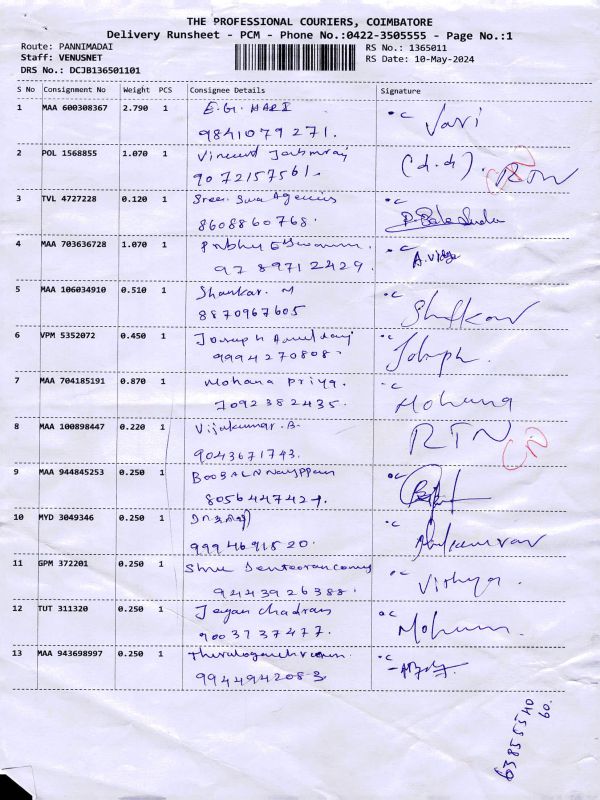 THE PROFESSIONAL COURIERS, COIMBATORE
Delivery Runsheet - PCM - Phone No.:0422-3505555 - Page No.:1
Route: PANNIMADAI RS No.: 1365011
Staff: VENUSNET RS Date: 10-May-2024
DRS No.: DCJB136501101
S No Consignment No Weight PCS Consignee Details Signature
1 MAA 600308367 2.790 1 E.G. HARI
9841079271.
2 POL 1568855 1.070 1 Vincent (d.d). RTN
9072157561.
3 TVL 4727228 0.120 1 Sree Siva Agencies
8608860768.
4 MAA 703636728 1.070 1 Prabhu A. Vidya
9789712429.
5 MAA 106034910 0.510 1 Shankar. M
8870967605
6 VPM 5352072 0.450 1 Joseph Joseph.
9994270808.
7 MAA 704185191 0.870 1 Mohana Priya. Mohana
7092382435.
8 MAA 100898447 0.220 1 Vijakumar. B. RTN
9043671743.
9 MAA 944845253 0.250 1
8056447427.
10 MYD 3049346 0.250 1
9994691520.
11 GPM 372201 0.250 1 Shree Vithya.
9443926388.
12 TUT 311320 0.250 1 Jegan Chadran
9003737477.
13 MAA 943698997 0.250 1
9944942083
6385554060.